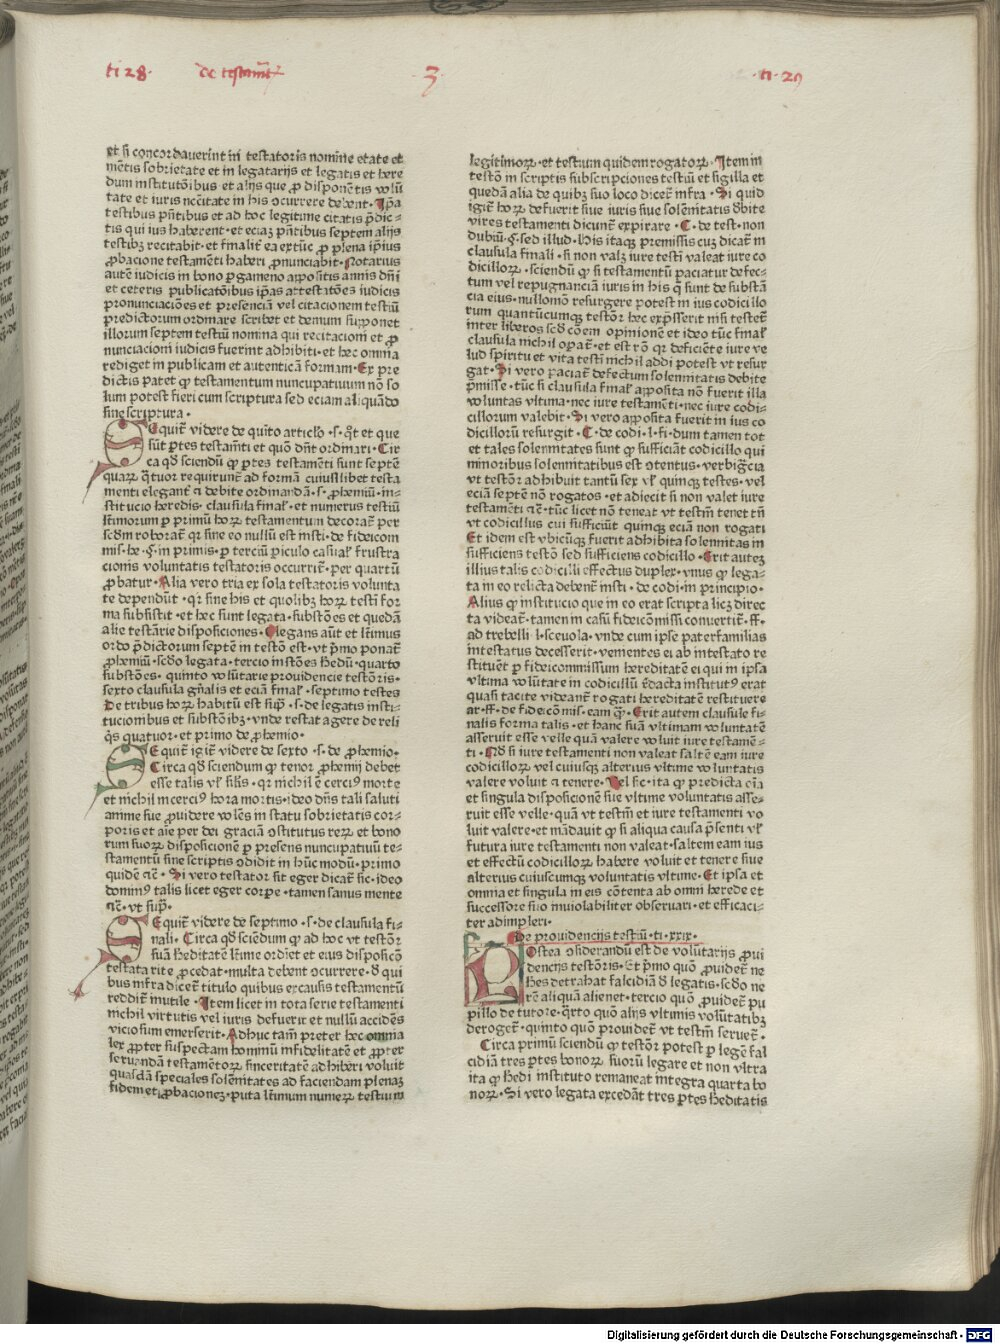 ti 28· de testam̄t 3 ·ti·29
et si concordaverint in testatoris nomine etate et
mētis sobrietate et in legatarijs et legatis et here
dum institutōibus et alijs que ꝓ disponētis volū
tate et iuris nc̄citate in his ocurrere debent· Ip̄a
testibus p̄ntibus et ad hoc legitime citatis p̄dic⸗
tis qui ius haberent·et eciaꝫ p̄ntibus septem alijs
testibꝫ recitabit·et fīnalit̄ ea extūc ꝓ plena ip̄ius
ꝓbacione testamēti haberi ꝓnunciabit·Notarius
autē iudicis in bono ꝑgameno apposītis annis dn̄i
et ceteris publicatōibus ip̄as attestatōes iudicis
pronunciaciōes et presenciā vel citacionem testiū
predictorum ordinare scribet et demum supponet
illorum septem testiū nomina qui recitacioni et ꝓ
nunciacioni iudicis fuerint adhibiti·et hec omnia
rediget in publicam et autenticā formam·Ex pre
dictis patet ꝙ testamentum nuncupatiuum nō so
lum potest fieri cum scriptura sed eciam aliquādo
sine scriptura·
SEquit̄ videre de quīto articl̄o·s·q̄t et que
sūt ꝑtes testam̄ti et quō dn̄t ordinari·Cir
ca qd̄ sciendū ꝙ ꝑtes testamēti sunt septē
quarꝝ q̄tuor requirunt̄ ad formā cuiuslibet testa
menti elegant̄ ⁊ debite ordinandā·s·ꝓhemiū·in⸗
stitucio heredis·clausula fīnal̄·et numerus testiū
l̄timorum ꝑ primū horꝝ testamentum decorat̄ per
scd̄m roborat̄ qꝛ sine eo nullū est insti·de fideicom
mis·he·§·in primis·ꝑ terciū ꝑiculo casual̄ frustra
cionis voluntatis testatoris occurrit̄·per quartū
ꝓbatur·Alia vero tria ex sola testatoris volunta
te dependūt·qꝛ sine his et quolibꝫ horꝝ testi for
ma subsistit·et hec sunt legata·substōes et quedā
alie testārie disposiciones·Elegans aūt et l̄timus
ordo p̄dictorum septē in testō est·vt p̄mo ponat̄
ꝓhemiū·scd̄o legata·tercio instōes hedū·quarto
substōes· quinto volūtarie prouidencie testōris·
sexto clausula gn̄alis et eciā fīnal̄·septimo testes
De tribus horꝝ habitū est sup̄·s·de legatis insti⸗
tucionibus et substōibꝫ·vnde restat agere de reli
q̄s quatuor·et primo de ꝓhemio·
SEquit̄ igit̄ videre de sexto·s·de ꝓhemio·
Circa qd̄ sciendum ꝙ tenor ꝓhemij debet
esse talis vl̄ sil̄is·qꝛ nichil ē cerciꝰ morte
et nichil incerciꝰ hora mortis·ideo dn̄s tali saluti
anime sue ꝓuidere volēs in statu sobrietatis cor⸗
poris et aīe per dei graciā ꝯstitutus rerꝝ et bono
rum suorꝝ disposicionē ꝑ presens nuncupatiuū te⸗
stamentū sine scriptis ꝯdidit in hūc modū·primo
quidē ⁊c̄·Si vero testator sit eger dicat̄ sic·ideo
dominꝰ talis licet eger corpe·tamen sanus mente
⁊c̄·vt sup̄·
SEquit̄ videre de septimo·s·de clausula fi⸗
nali·Circa qd̄ sciēdum ꝙ ad hoc vt testōr
suā heditatē l̄time ordīet et eius disposicō
testata rite ꝓcedat·multa debent ꝯcurrere·d̄ qui
bus infra dicet̄ titulo quibus ex causis testamentū
reddit̄ inutile·Item licet in tota serie testamenti
nichil virtutis vel iuris defuerit et nullū accidēs
viciosum emerserit·Adhuc tam̄ preter hec omnia
lex ꝓpter suspectam hominū infidelitatē et ꝓpter
seruandā testamētorꝝ sinceritatē adhiberi voluit
quasdā speciales solēnitates ad faciendam plenaꝫ
fidem et ꝓbacioneꝫ·puta l̄timum numerꝝ testium
legitimorꝝ·et testium quidem rogatorꝝ·Item in
testō in scriptis subscripciones testiū et sigilla et
quedā alia de quibꝫ suo loco dicet̄ infra·Si quid
igit̄ horꝝ defuerit siue iuris siue solēnitatis d̄bite
vires testamenti dicunt̄ expirare·C·de test·non
dubiū·§·sed illud·His itaqꝫ premissis cuꝫ dicat̄ in
clausula fīnali·si non valꝫ iure testi valeat iure co
dicillorꝝ·sciendū ꝙ si testamentū paciatur defec⸗
tum vel repugnanciā iuris in his q̄ sunt de substā
cia eius·nullomō resurgere potest in ius codicillo
rum quantūcumqꝫ testōr hec exp̄sserit nisi testet̄
inter liberos scd̄ cōem opinionē et ideo tūc fīnal̄
clausula nichil oꝑat̄·et est rō qꝛ deficiēte iure ve
lud spiritu et vita testi nichil addi potest vt resur
gat·Si vero paciat̄ defectum solennitatis debite
p̄misse·tūc si clausula fīnal̄ apposita nō fuerit illa
voluntas vltima·nec iure testamēti·nec iure codi⸗
cillorum valebit·Si vero apposita fuerit in ius co
dicillorū resurgit·C·de codi·l·fi·dum tamen tot
et tales solennitates sunt ꝙ sufficiāt codicillo qui
minoribus solennitatibus est ꝯtentus·verbigr̄cia
vt testōr adhibuit tantū sex vl̄ quinqꝫ testes·vel
eciā septē nō rogatos·et adiecit si non valet iure
testamēti ⁊c̄·tūc licet nō teneat vt testm̄ tenet tn̄
vt codicillus cui sufficiūt quinqꝫ eciā non rogati
Et idem est vbicūqꝫ fuerit adhibita solennitas in
sufficiens testō sed sufficiens codicillo·Erit auteꝫ
illius talis codicilli effectus duplex·vnus ꝙ lega⸗
ta in eo relicta debent̄ insti·de codi·in principio·
Alius ꝙ institucio que in eo erat scripta licꝫ direc
ta videat̄·tamen in casū fideicōmissi conuertit̄·ff·
ad trebelli·l·sceuola·vnde cum ipse paterfamilias
intestatus decesserit·venientes ei ab intestato re
stituēt ꝑ fideicommissum hereditatē ei qui in ipsa
vltima volūtate in codicillū r̄dacta institutꝰ erat
quasi tacite videant̄ rogati hereditatē restituere
ar·ff·de fideicōmis·eam q̄·Erit autem clausule fi⸗
nalis forma talis·et hanc suā vltimam voluntatē
asseruit esse velle quā valere voluit iure testamē⸗
ti·Qd̄ si iure testamenti non valeat saltē eam iure
codicillorꝝ vel cuiusqꝫ alterius vltime voluntatis
valere voluit ⁊ tenere·Vel sic·ita ꝙ predicta oīa
et singula disposicionē siue vltime voluntatis asse⸗
ruit esse velle·quā vt testm̄ et iure testamenti vo
luit valere·et mādauit ꝙ si aliqua causa p̄senti vl̄
futura iure testamenti non valeat·saltem eam ius
et effectū codicillorꝝ habere voluit et tenere siue
alterius cuiuscumqꝫ voluntatis vltime·Et ipsa et
omnia et singula in eis cōtenta ab omni herede et
successore suo inuiolabiliter obseruari·et efficaci⸗
ter adimpleri·
De prouidencijs testiū·ti·xxix·
POstea ꝯsiderandū est de volūtarijs ꝓui
dencijs testōris·Et p̄mo quō ꝓuidet̄ ne
hēs detrahat falcidiā d̄ legatis·scd̄o ne
rē aliquā alienet·tercio quō ꝓuidet̄ pu
pillo de tutore·q̄rto quō alijs vltimis volūtatibꝫ
deroget̄·quinto quō prouidet̄ vt testm̄ seruet̄·
Circa primū sciendū ꝙ testōr potest ꝑ legē fal
cidiā tres ꝑtes bonorꝝ suorū legare et non vltra
ita ꝙ hedi instituto remaneat integra quarta bo
norꝝ·Si vero legata excedāt tres ꝑtes heditatis
Digitalisierung gefördert durch die Deutsche Forschungsgemeinschaft · DFG